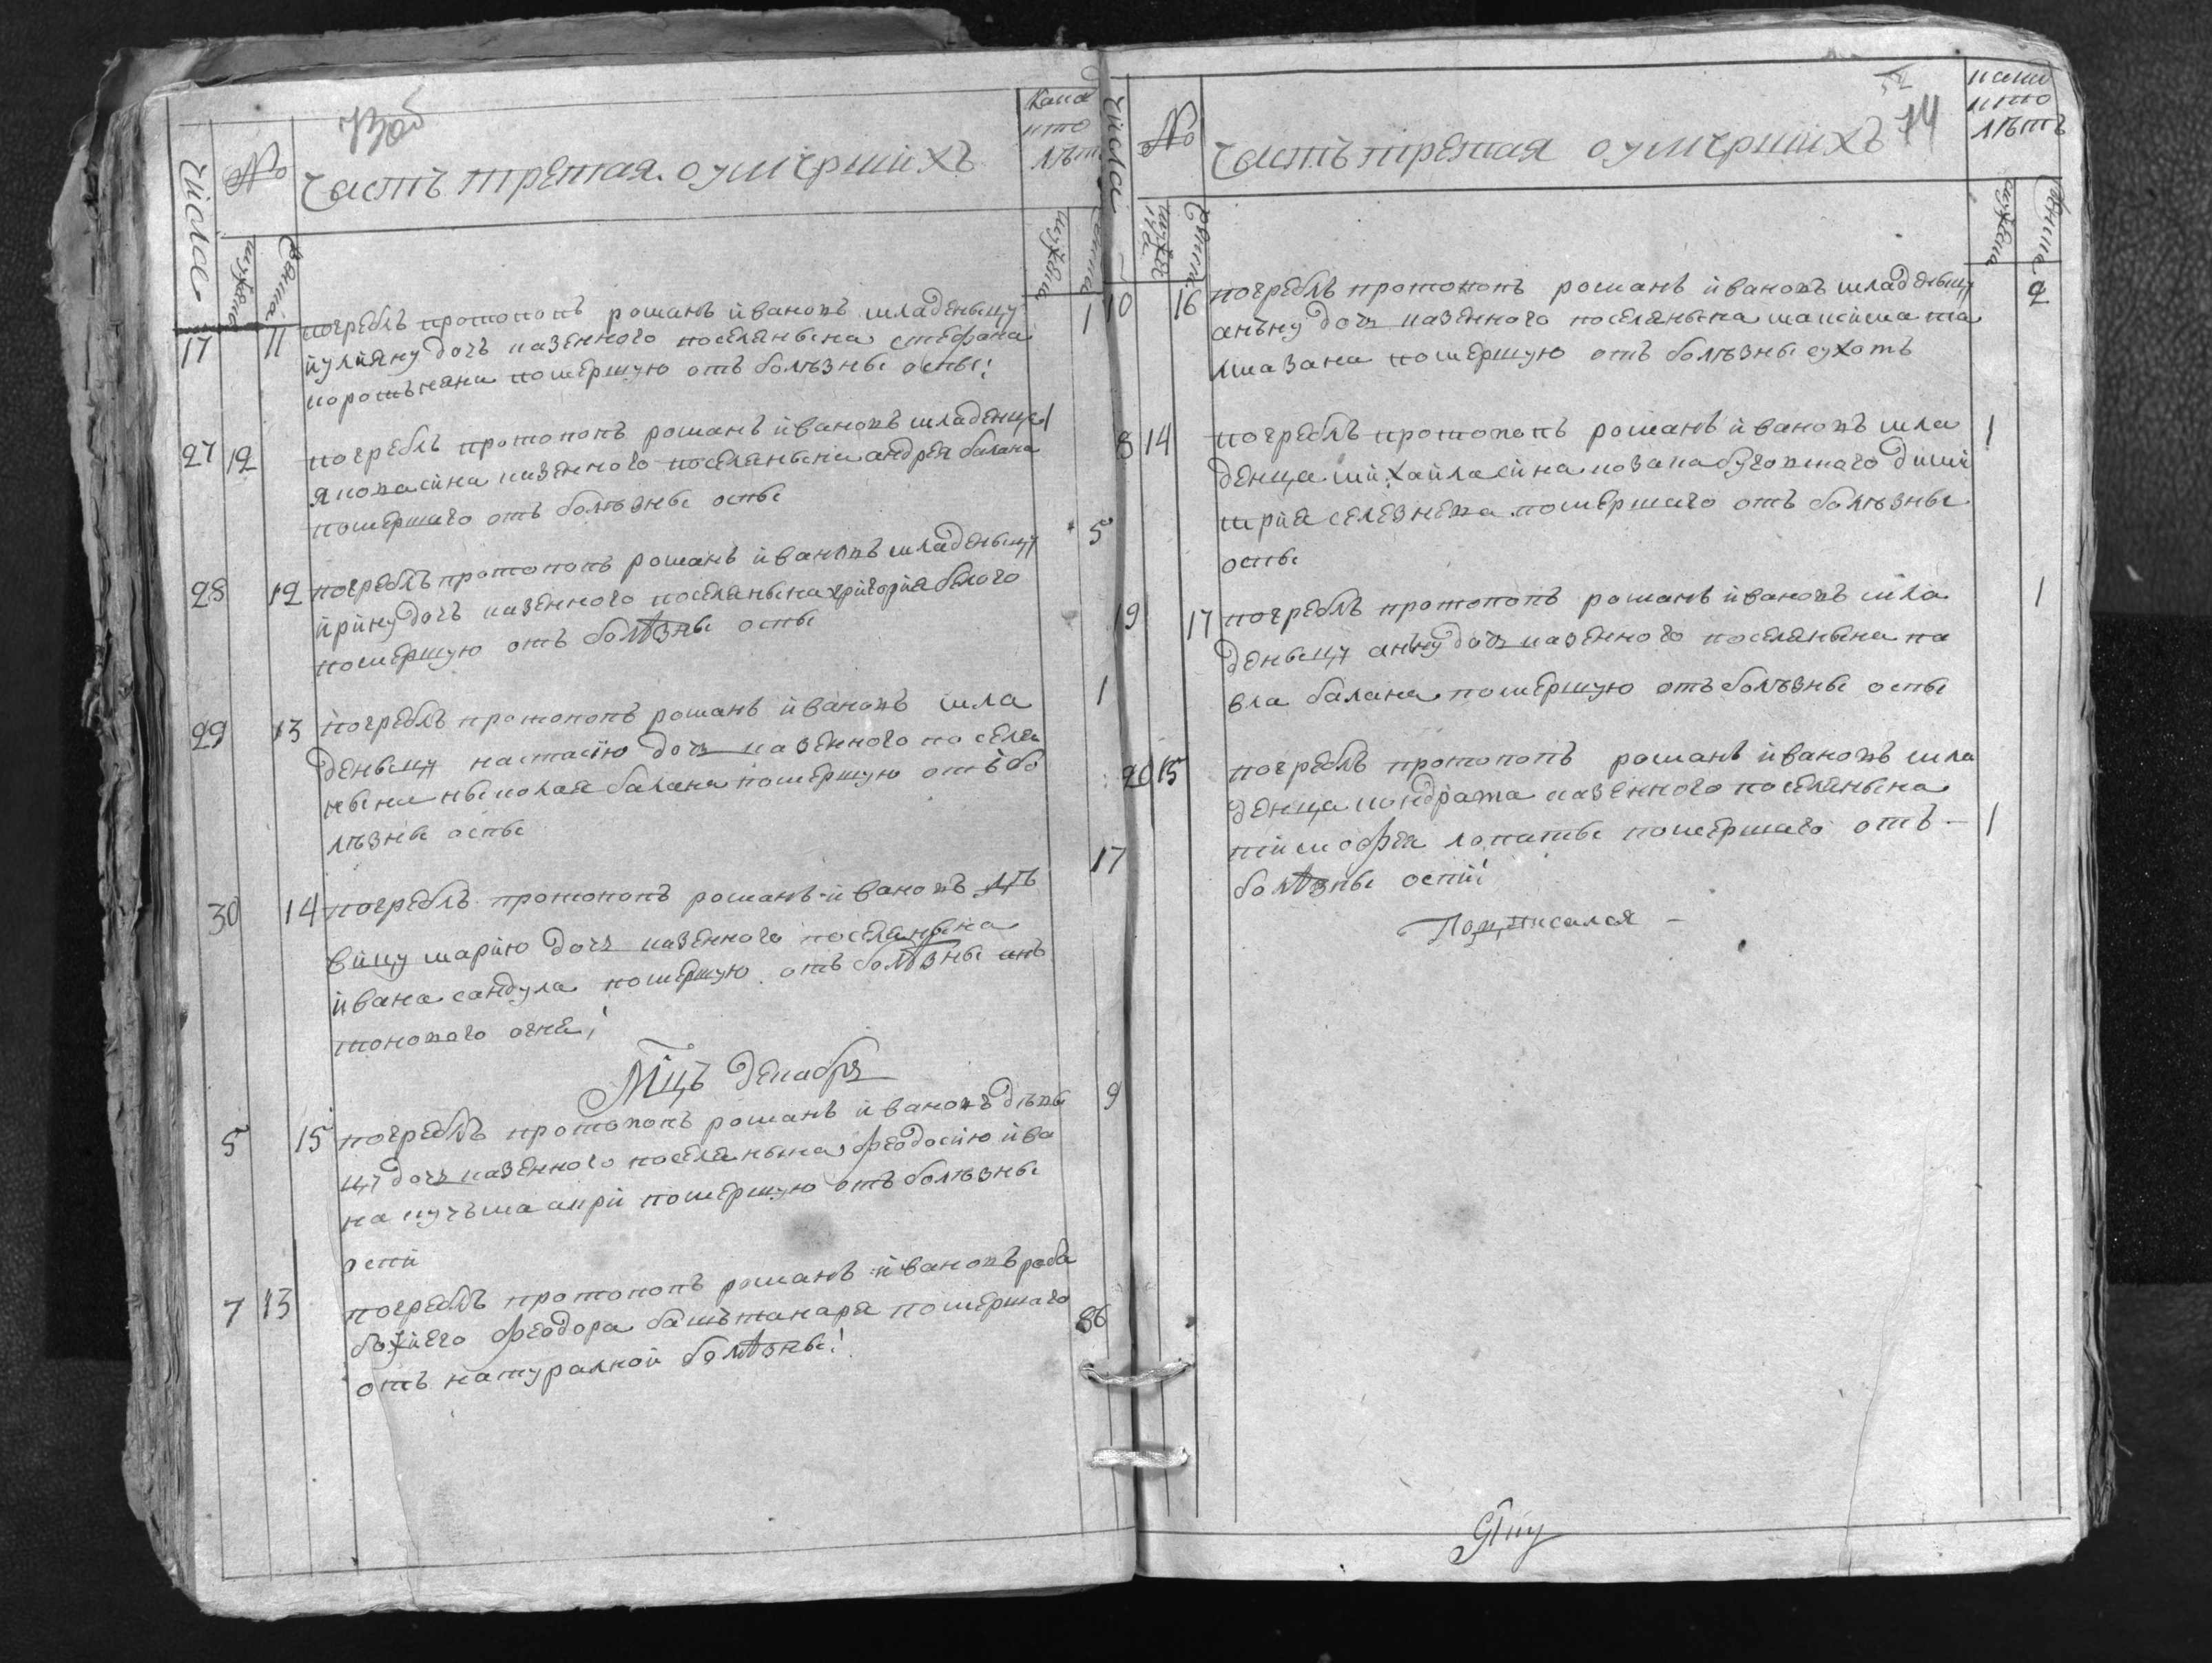 Числа № Часть третая о умершихъ Кака
кто
лѣтъ
мужеска женска мужеска женска
17 11 погребъ протопопъ романъ йвановъ младеньцу 1
йулияну дочъ казенного поселянына стефана
коротъкяна помершую отъ болѣзны оспы:
27 12 погребъ протопопъ романъ йвановъ младенца 1
якова сйна казенного поселяныне андрея балана
помершаго отъ болѣзны оспы
28 12 погребъ протопопъ романъ йвановъ младеньцу 5
йрйну дочъ казенного поселянына григорйя белого
помершую отъ болѣзны оспы
29 13 погребъ протопопъ романъ йвановъ мла 1
деньцу настасйю дочъ казенного поселя
ныне ныколая балана помершую отъ бо
лѣзны оспы
30 14 погребъ протопопъ романъ йвановъ дѣ 17
вйцу марйю дочъ казенного поселянына
йвана сандула помершую отъ болѣзны анъ
тонового огня!
Мцъ декабря
5 15 погребъ протопопъ романъ йвановъ дѣвы 9
цу дочъ казенного поселянына феодосйю йва
на помершую отъ болѣзны
оспй
7 13 погребъ протопопъ романъ йвановъ раба 86
божйего феодора башътанаря помершаго
отъ натуралной болѣзны!
Числа № Часть третая о умершихъ 74 каки
кто
лѣтъ
мужеска женска мужеска женска
10 16 погребъ протопопъ романъ йвановъ младеньцу 2
анъну дочъ казенного поселянына максйма та
лмазана помершую отъ болѣзны сухотъ
8 14 погребъ протопопъ романъ йвановъ мла 1
денца мйхайла сйна козака буговского дими
трйя селезнева помершаго отъ болѣзны
оспы
19 17 погребъ протопопъ романъ йвановъ мла 1
деньцу анъну дочъ казенного поселянына па
вла балана помершую отъ болѣзны оспы
20 15 погребъ протопопъ романъ йвановъ мла
денца кондрата казенного поселянына
тймофея лопаты помершаго отъ 1
болѣзны оспй!
Подписался